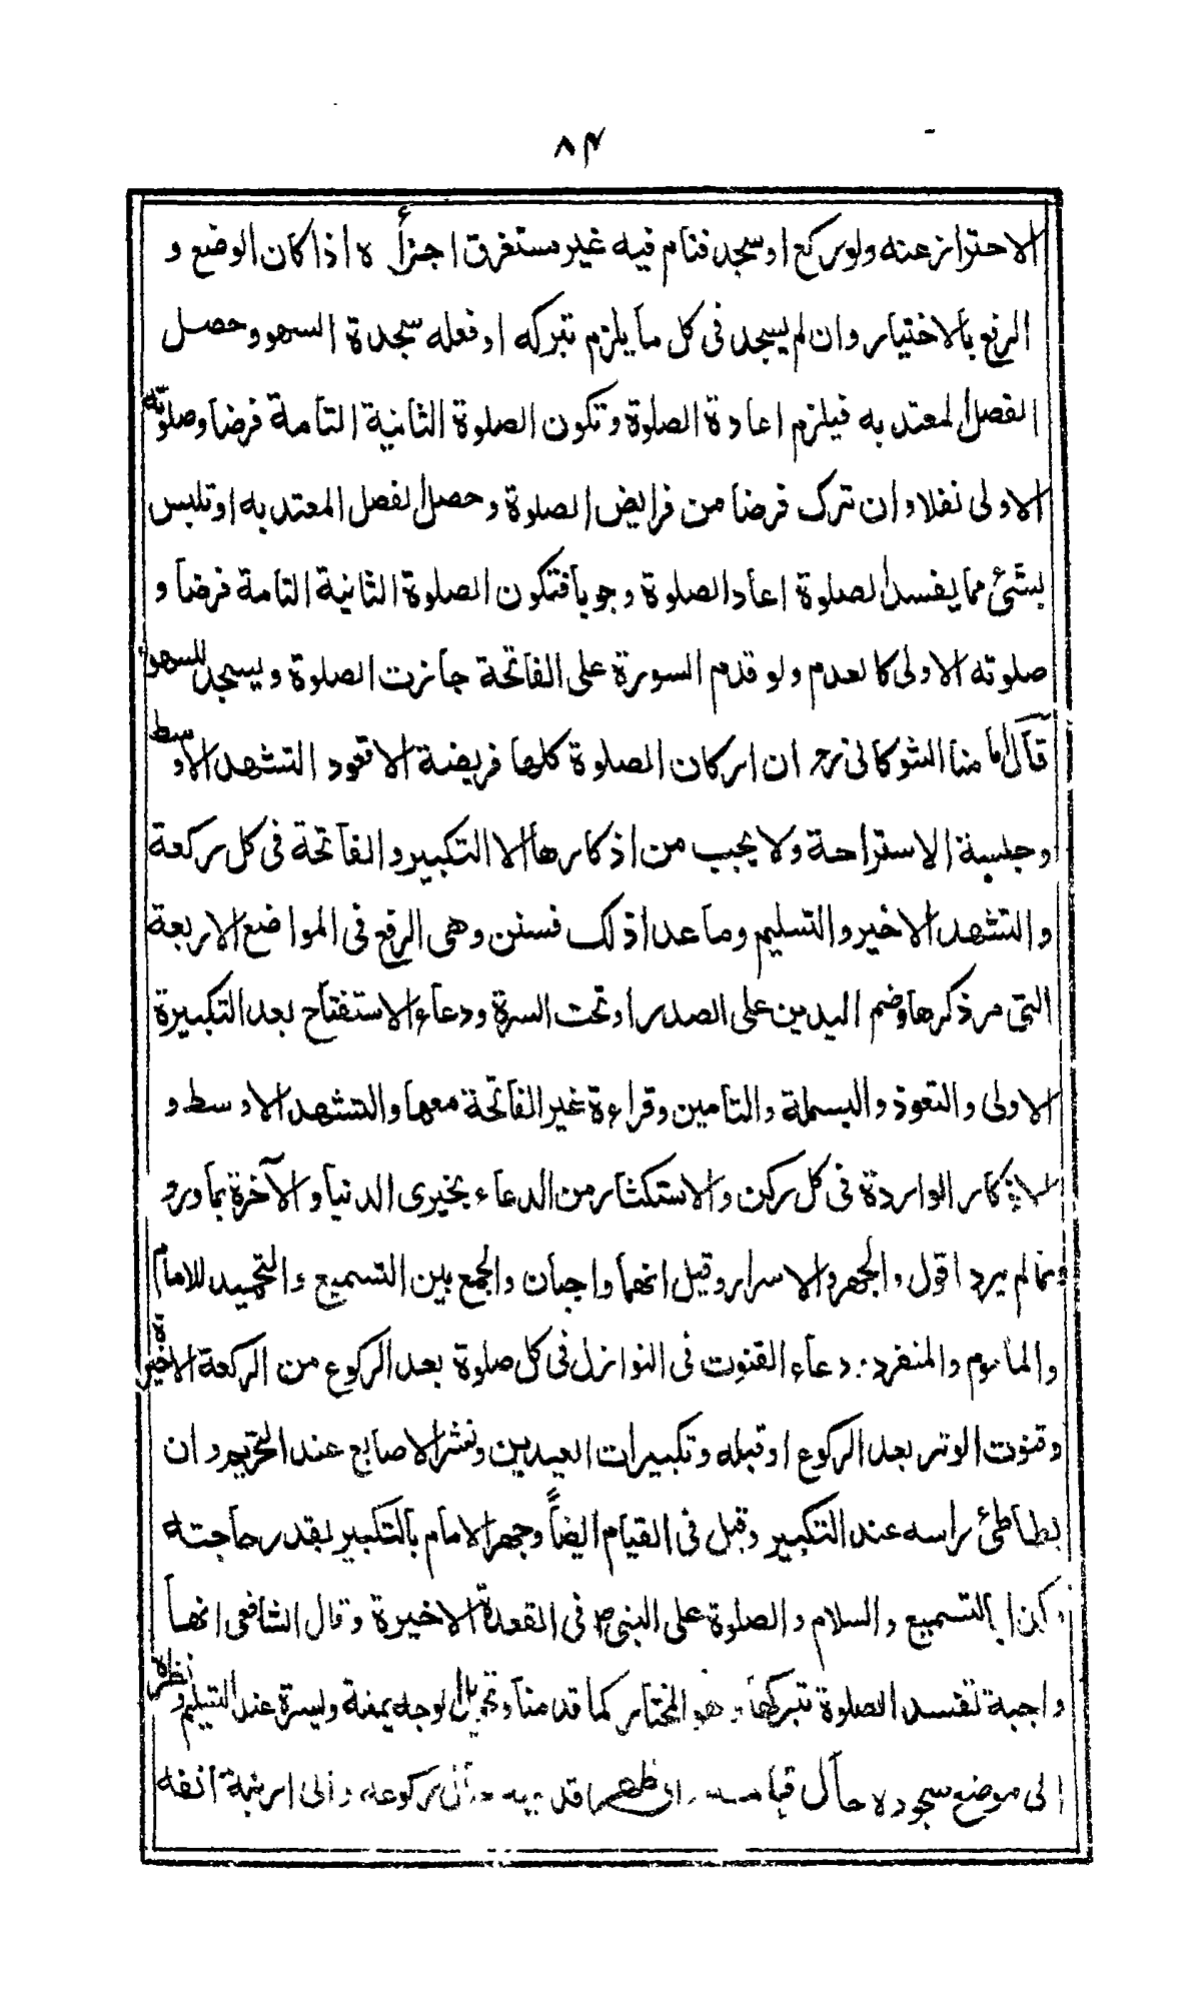 ۸۴
الاحتراز عنه ولو ركع او سجد فنام فيه غير مستغرق اجزأه اذا كان الوضع و
الرفع بالاختيار وان لم يسجد فى كل ما يلزم بتركه او فعله سجدة السهو وحصل
الفصل المعتد به فيلزم اعادة الصلوة وتكون الصلوة الثانية التامة فرضا وصلوته
الاولى نفلا وان ترك فرضا من فرايض الصلوة وحصل الفصل المعتد به او تلبس
بشئ مما يفسد الصلوة اعاد الصلوة وجوبا فتكون الصلوة الثانية التامة فرضا و
صلوته الاولى كالعدم ولو قدم السورة على الفاتحة جازت الصلوة ويسجد للسهو
قال امامنا الشوكانى رح ان اركان الصلوة كلها فريضة الا قعود التشهد الاوسط
وجلسة الاستراحة ولا يجب من اذكارها الا التكبير والفاتحة فى كل ركعة
والتشهد الاخير والتسليم وما عدا ذلك فسنن وهى الرفع فى المواضع الاربعة
التى مر ذكرها وضم اليدين على الصدر او تحت السرة ودعاء الاستفتاح بعد التكبيرة
الاولى والتعوذ والبسملة والتامين وقراءة غير الفاتحة معها والتشهد الاوسط و
الاذكار الواردة فى كل ركن والاستكثار من الدعاء بخيرى الدنيا والآخرة بما ورد
وبما لم يرد اقول والجهر والاسرار وقيل انهما واجبان والجمع بين التسميع والتحميد للامام
والماموم والمنفرد ودعاء القنوت فى النوازل فى كل صلوة بعد الركوع من الركعة الاخيرة
وقنوت الوتر بعد الركوع او قبله وتكبيرات العيدين ونشر الاصابع عند التحريم وان
يطاطئ راسه عند التكبير وقيل فى القيام ايضاً وجهر الامام بالتكبير بقدر حاجته
وكذا بالتسميع والسلام والصلوة على النبى ص فى القعدة الاخيرة وقال الشافعى انها
واجبة تفسد الصلوة بتركها وهو المختار كما قدمنا وتحويل الوجه يمنة ويسرة عند التسليم ونظره
الى موضع سجوده حال قيامه والى ظهر قدميه حال ركوعه والى ارنبة انفه